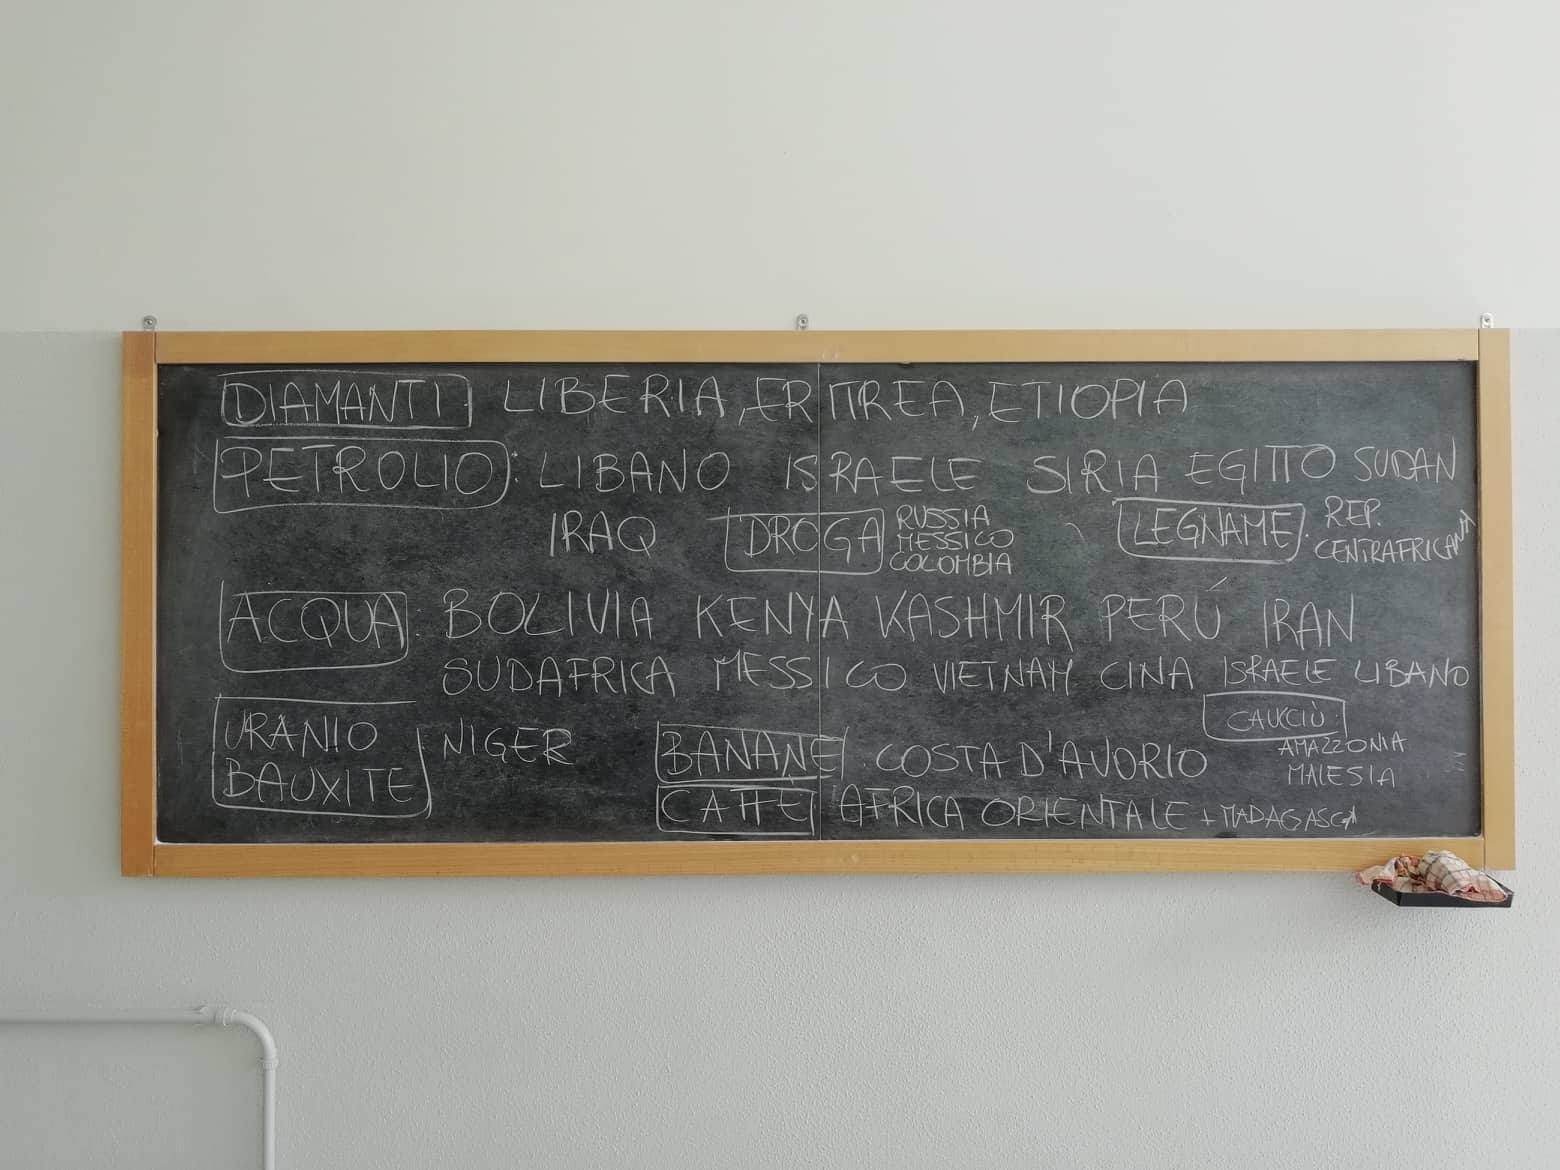 DIAMANTI LIBERIA, ERITREA, ETIOPIA
PETROLIO: LIBANO ISRAELE SIRIA EGITTO SUDAN
IRAQ
DROGA RUSSIA
MESSICO
COLOMBIA
LEGNAME: REP.
CENTRAFRICANA
ACQUA: BOLIVIA KENYA KASHMIR PERÚ IRAN
SUDAFRICA MESSICO VIETNAM CINA ISRAELE LIBANO
URANIO
BAUXITE: NIGER
BANANE: COSTA D'AVORIO
CAFFÈ AFRICA ORIENTALE + MADAGASCA
CAUCCIÙ:
AMAZZONIA
MALESIA